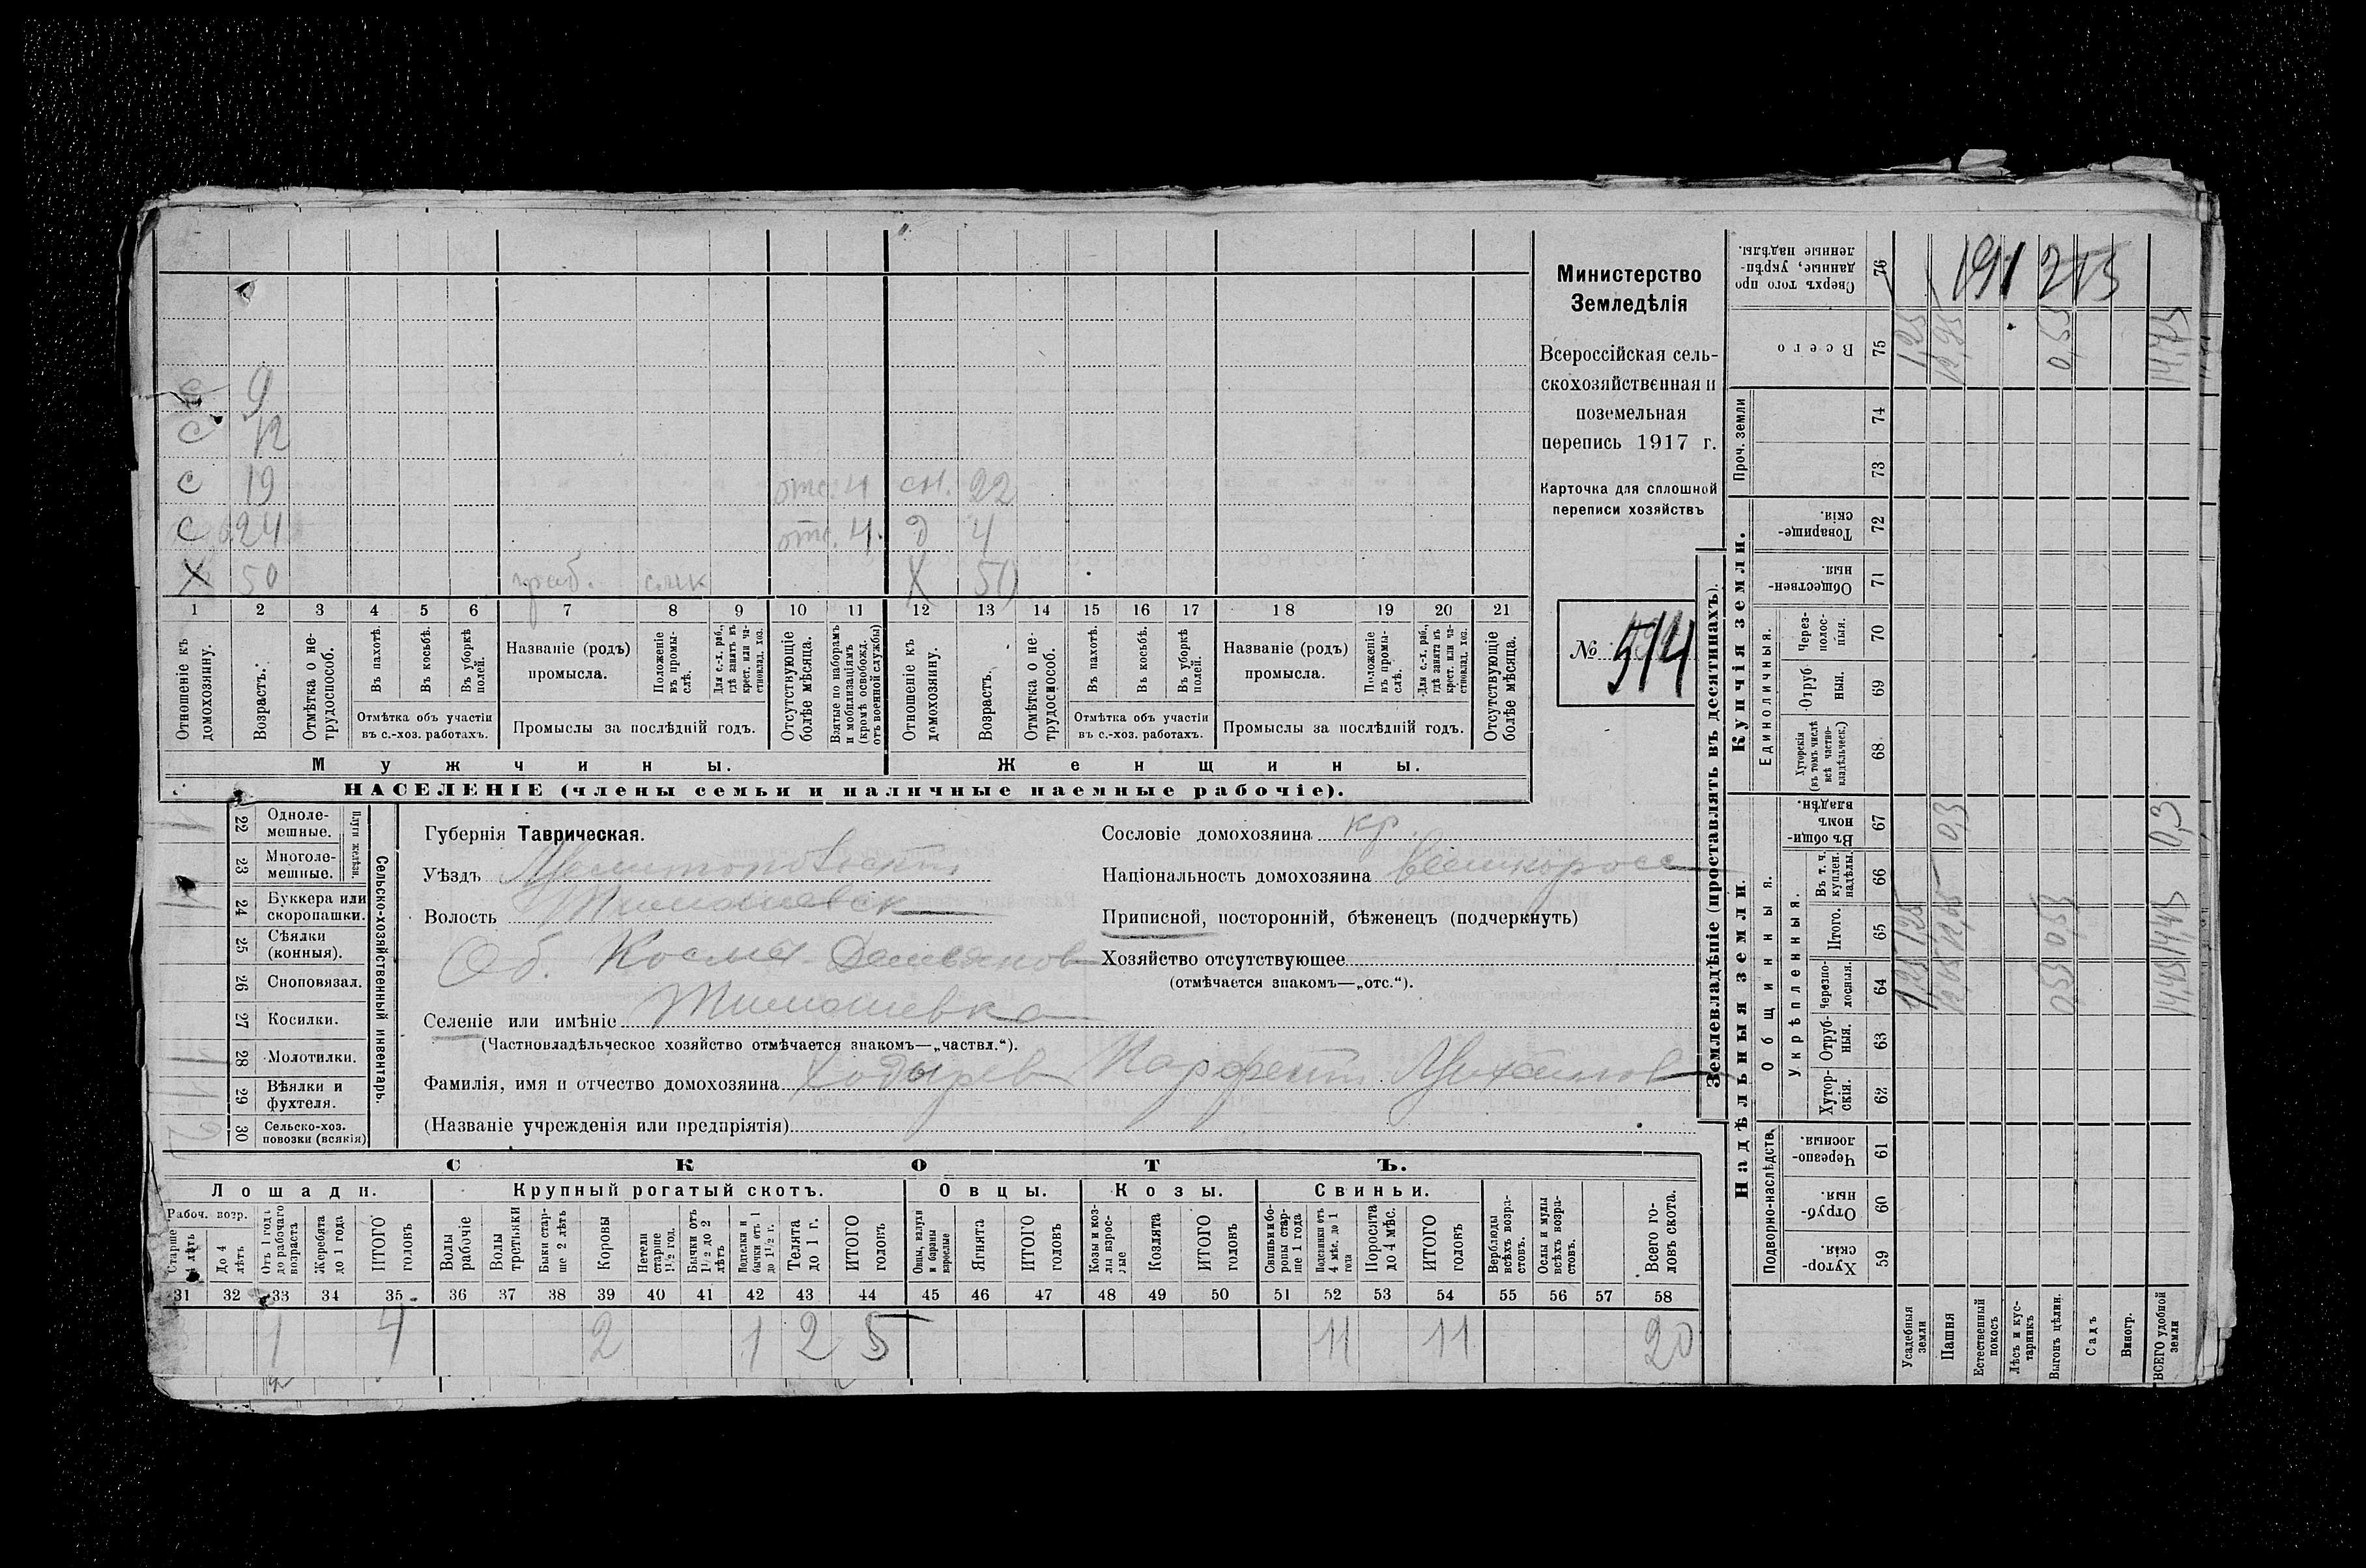 Министерство
Земледѣлія
Всероссійская сель-
скохозяйственная и
поземельная
перепись 1917 г.
Карточка для сплошной
переписи хозяйствъ
№ 514
с 9
с 12
с 19 отс. 4 сн. 22
с 24 отс. 4. д 4
Х 50 Х 50
1 2 3 4 5 6 7 8 9 10 11 12 13 14 15 16 17 18 19 20 21
Отношеніе къ домохозяину.
Возрастъ.
Отмѣтка о не-трудоспособ.
Въ пахотѣ.
Въ косьбѣ.
Въ уборкѣ полей.
Отмѣтка объ участіи въ с.-хоз. работахъ.
Названіе (родъ) промысла.
Положеніе въ промы-слѣ.
Для с.-х. раб., гдѣ занятъ въ крест. или ча-стновлад. хоз.
Промыслы за послѣдній годъ.
Отсутствующіе болѣе мѣсяца.
Взятые по наборамъ и мобилизаціямъ (кромѣ освобожд. отъ военной службы)
Отношеніе къ домохозяину.
Возрастъ.
Отмѣтка о не-трудоспособ.
Въ пахотѣ.
Въ косьбѣ.
Въ уборкѣ полей.
Отмѣтка объ участіи въ с.-хоз. работахъ.
Названіе (родъ) промысла.
Положеніе въ промы-слѣ.
Для с.-х. раб., гдѣ занята въ крест. или ча-стновлад. хоз.
Промыслы за послѣдній годъ.
Отсутствующіе болѣе мѣсяца.
Мужчины. Женщины.
НАСЕЛЕНІЕ (члены семьи и наличные наемные рабочіе).
Сельско-хозяйственный инвентарь.
Плуги желѣзн.
22 Одноле-мешные. 1
23 Многоле-мешные.
24 Буккера или скоропашки. 1
25 Сѣялки (конныя).
26 Сноповязал.
27 Косилки.
28 Молотилки. 1
29 Вѣялки и фухтеля. 1
30 Сельско-хоз. повозки (всякія) 2
Губернія Таврическая.
Уѣздъ Мелитопольскій
Волость Тимошевск
Об. Косма-Демьянов
Селеніе или имѣніе Тимошевка
(Частновладѣльческое хозяйство отмѣчается знакомъ—„частвл.“).
Фамилія, имя и отчество домохозяина Ходырев Парфентій Михайлов
(Названіе учрежденія или предпріятія)
Сословіе домохозяина кр.
Національность домохозяина великоросс
Приписной, посторонній, бѣженецъ (подчеркнуть)
Хозяйство отсутствующее
(отмѣчается знакомъ—„отс.“).
СКОТЪ.
Лошади. Крупный рогатый скотъ. Овцы. Козы. Свиньи.
Рабоч. возр.
Старше 4 лѣтъ
До 4 лѣтъ
Отъ 1 года до рабочаго возраста
Жеребята до 1 года
ИТОГО головъ
Волы рабочіе
Волы третьяки
Быки стар-ше 2 лѣтъ
Коровы
Нетели старше 1½ год.
Бычки отъ 1½ до 2 лѣтъ
Подтелки и бычки отъ 1 до 1½ г.
Телята до 1 г.
ИТОГО головъ
Овцы, валухи и бараны взрослые
Ягнята
ИТОГО головъ
Козы и коз-лы взрос-лые
Козлята
ИТОГО головъ
Свиньи и бо-ровы стар-ше 1 года
Подсвинки отъ 4 мѣс. до 1 года
Поросята до 4 мѣс.
ИТОГО головъ
Верблюды всѣхъ возра-стовъ.
Ослы и мулы всѣхъ возра-стовъ.
Всего го-ловъ скота.
31 32 33 34 35 36 37 38 39 40 41 42 43 44 45 46 47 48 49 50 51 52 53 54 55 56 57 58
1 4 2 1 2 5 11 11 20
Землевладѣніе (проставлять въ десятинахъ).
Надѣльныя земли. Купчія земли.
Подворно-наслѣдств.
Общинныя.
Укрѣпленныя.
Единоличныя.
Проч. земли
59 Хутор-скія.
60 Отруб-ныя.
61 Черезпо-лосныя.
62 Хутор-скія.
63 Отруб-ныя.
64 Черезпо-лосныя.
65 Итого.
66 Въ т. ч. куплен. надѣлы.
67 Въ общи-номъ владѣн.
68 Хуторскія (въ томъ числѣ всѣ частно-владѣльческ.)
69 Отруб-ныя.
70 Через-полос-ныя.
71 Обществен-ныя.
72 Товарище-скія.
73
74
75 Всего
76 Сверхъ того про-данные, укрѣп-ленные надѣлы.
191 213
Усадебныя земли 1,25 1,25 1,25
Пашня 12,65 12,65 0,3 12,95
Естественный покосъ
Лѣсъ и кус-тарникъ
Выгонъ цѣлин. 0,55 0,55 0,55
Садъ
Виногр.
ВСЕГО удобной земли 14,45 14,45 0,3 14,75